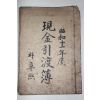 昭和十一年度
現金引渡簿